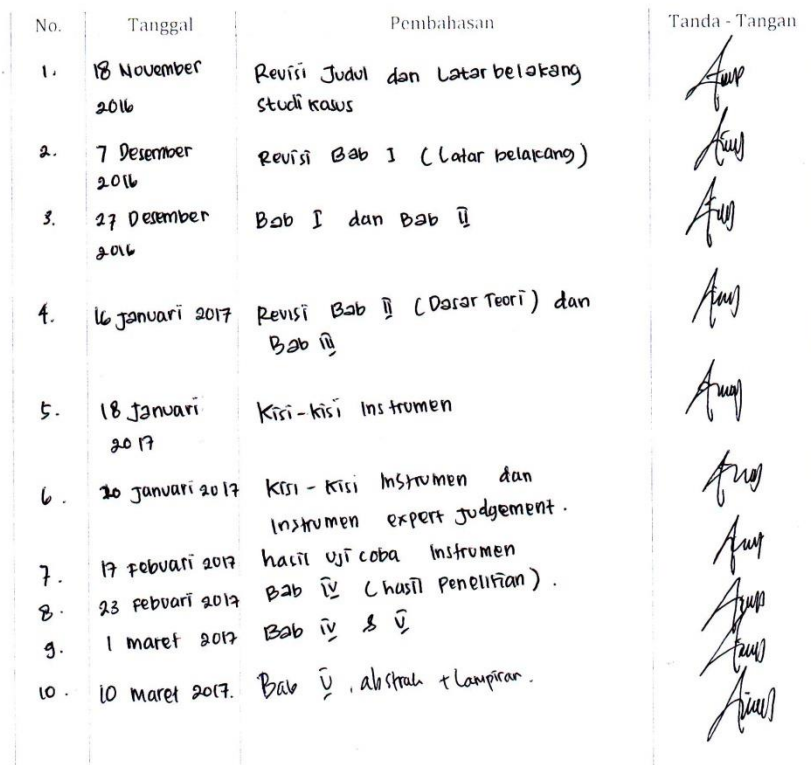 No. Tanggal Pembahasan Tanda - Tangan
1. 18 November Revisi Judul dan Latar belakang
2016 Studi kasus
2. 7 Desember Revisi Bab I (Latar belakang)
2016
3. 27 Desember Bab I dan Bab II
2016
4. 16 Januari 2017 Revisi Bab II (Dasar Teori) dan
Bab III
5. 18 Januari Kisi-kisi Instrumen
2017
6. 20 Januari 2017 Kisi-Kisi Instrumen dan
Instrumen expert Judgement.
7. 17 Febuari 2017 hasil uji coba Instrumen
8. 23 Febuari 2017 Bab IV (hasil Penelitian).
9. 1 maret 2017 Bab IV & V
10. 10 maret 2017. Bab V, abstrak + Lampiran.